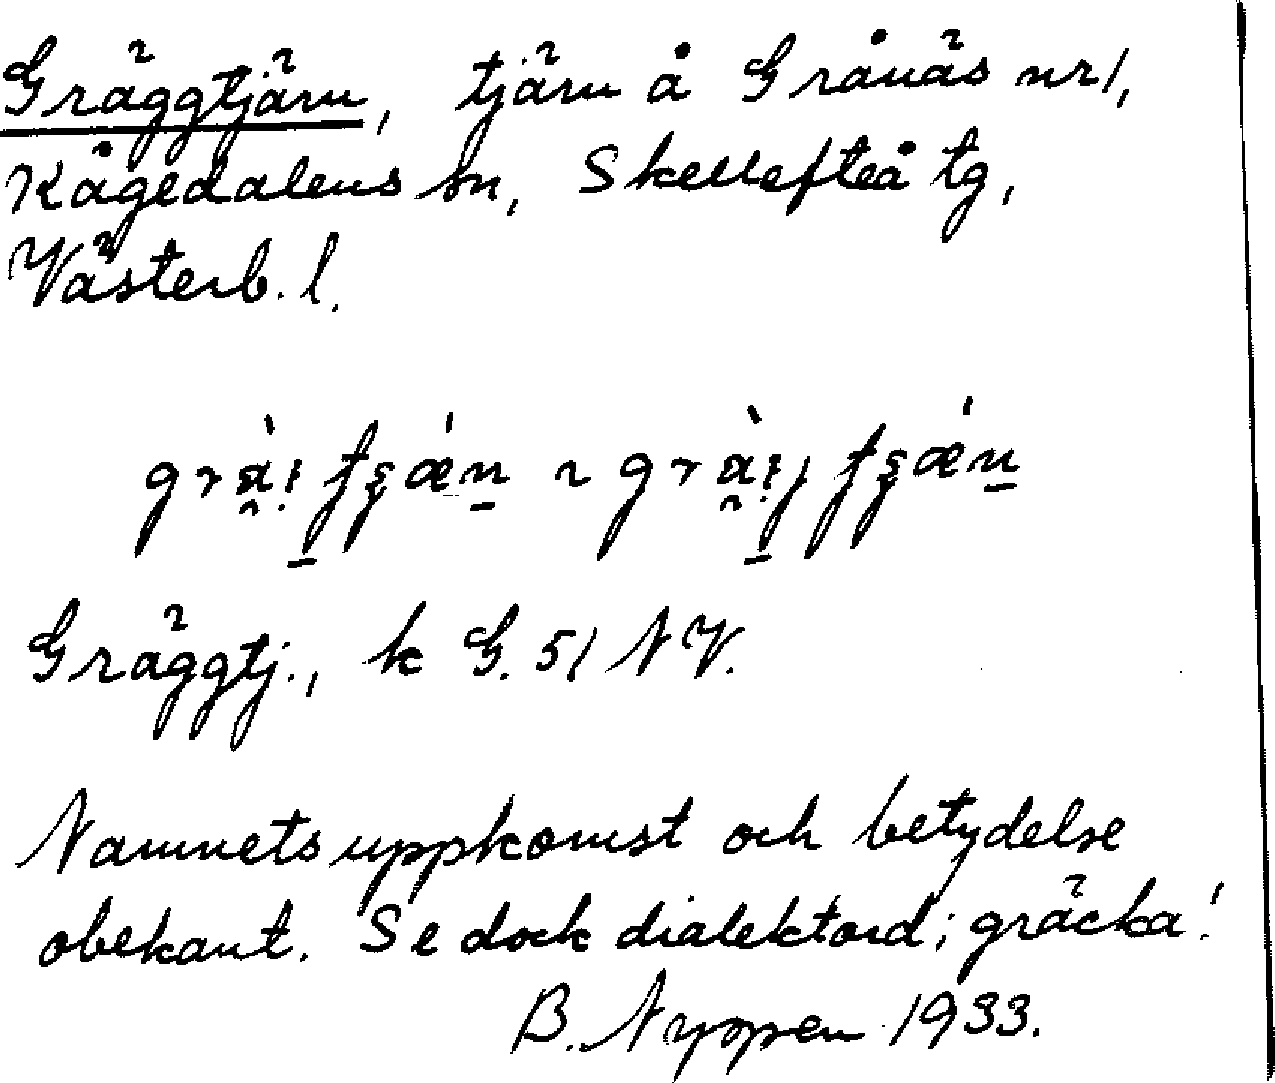 Gräggtjärn, tjärn å Grånäs nr 1,
Kågedalens sn, Skellefteå tg,
Västerb. l.
Gräggtj., k G. 51 NV.
Namnets uppkomst och betydelse
obekant. Se dock dialektord; gräcka!
B. Nyppen 1933.